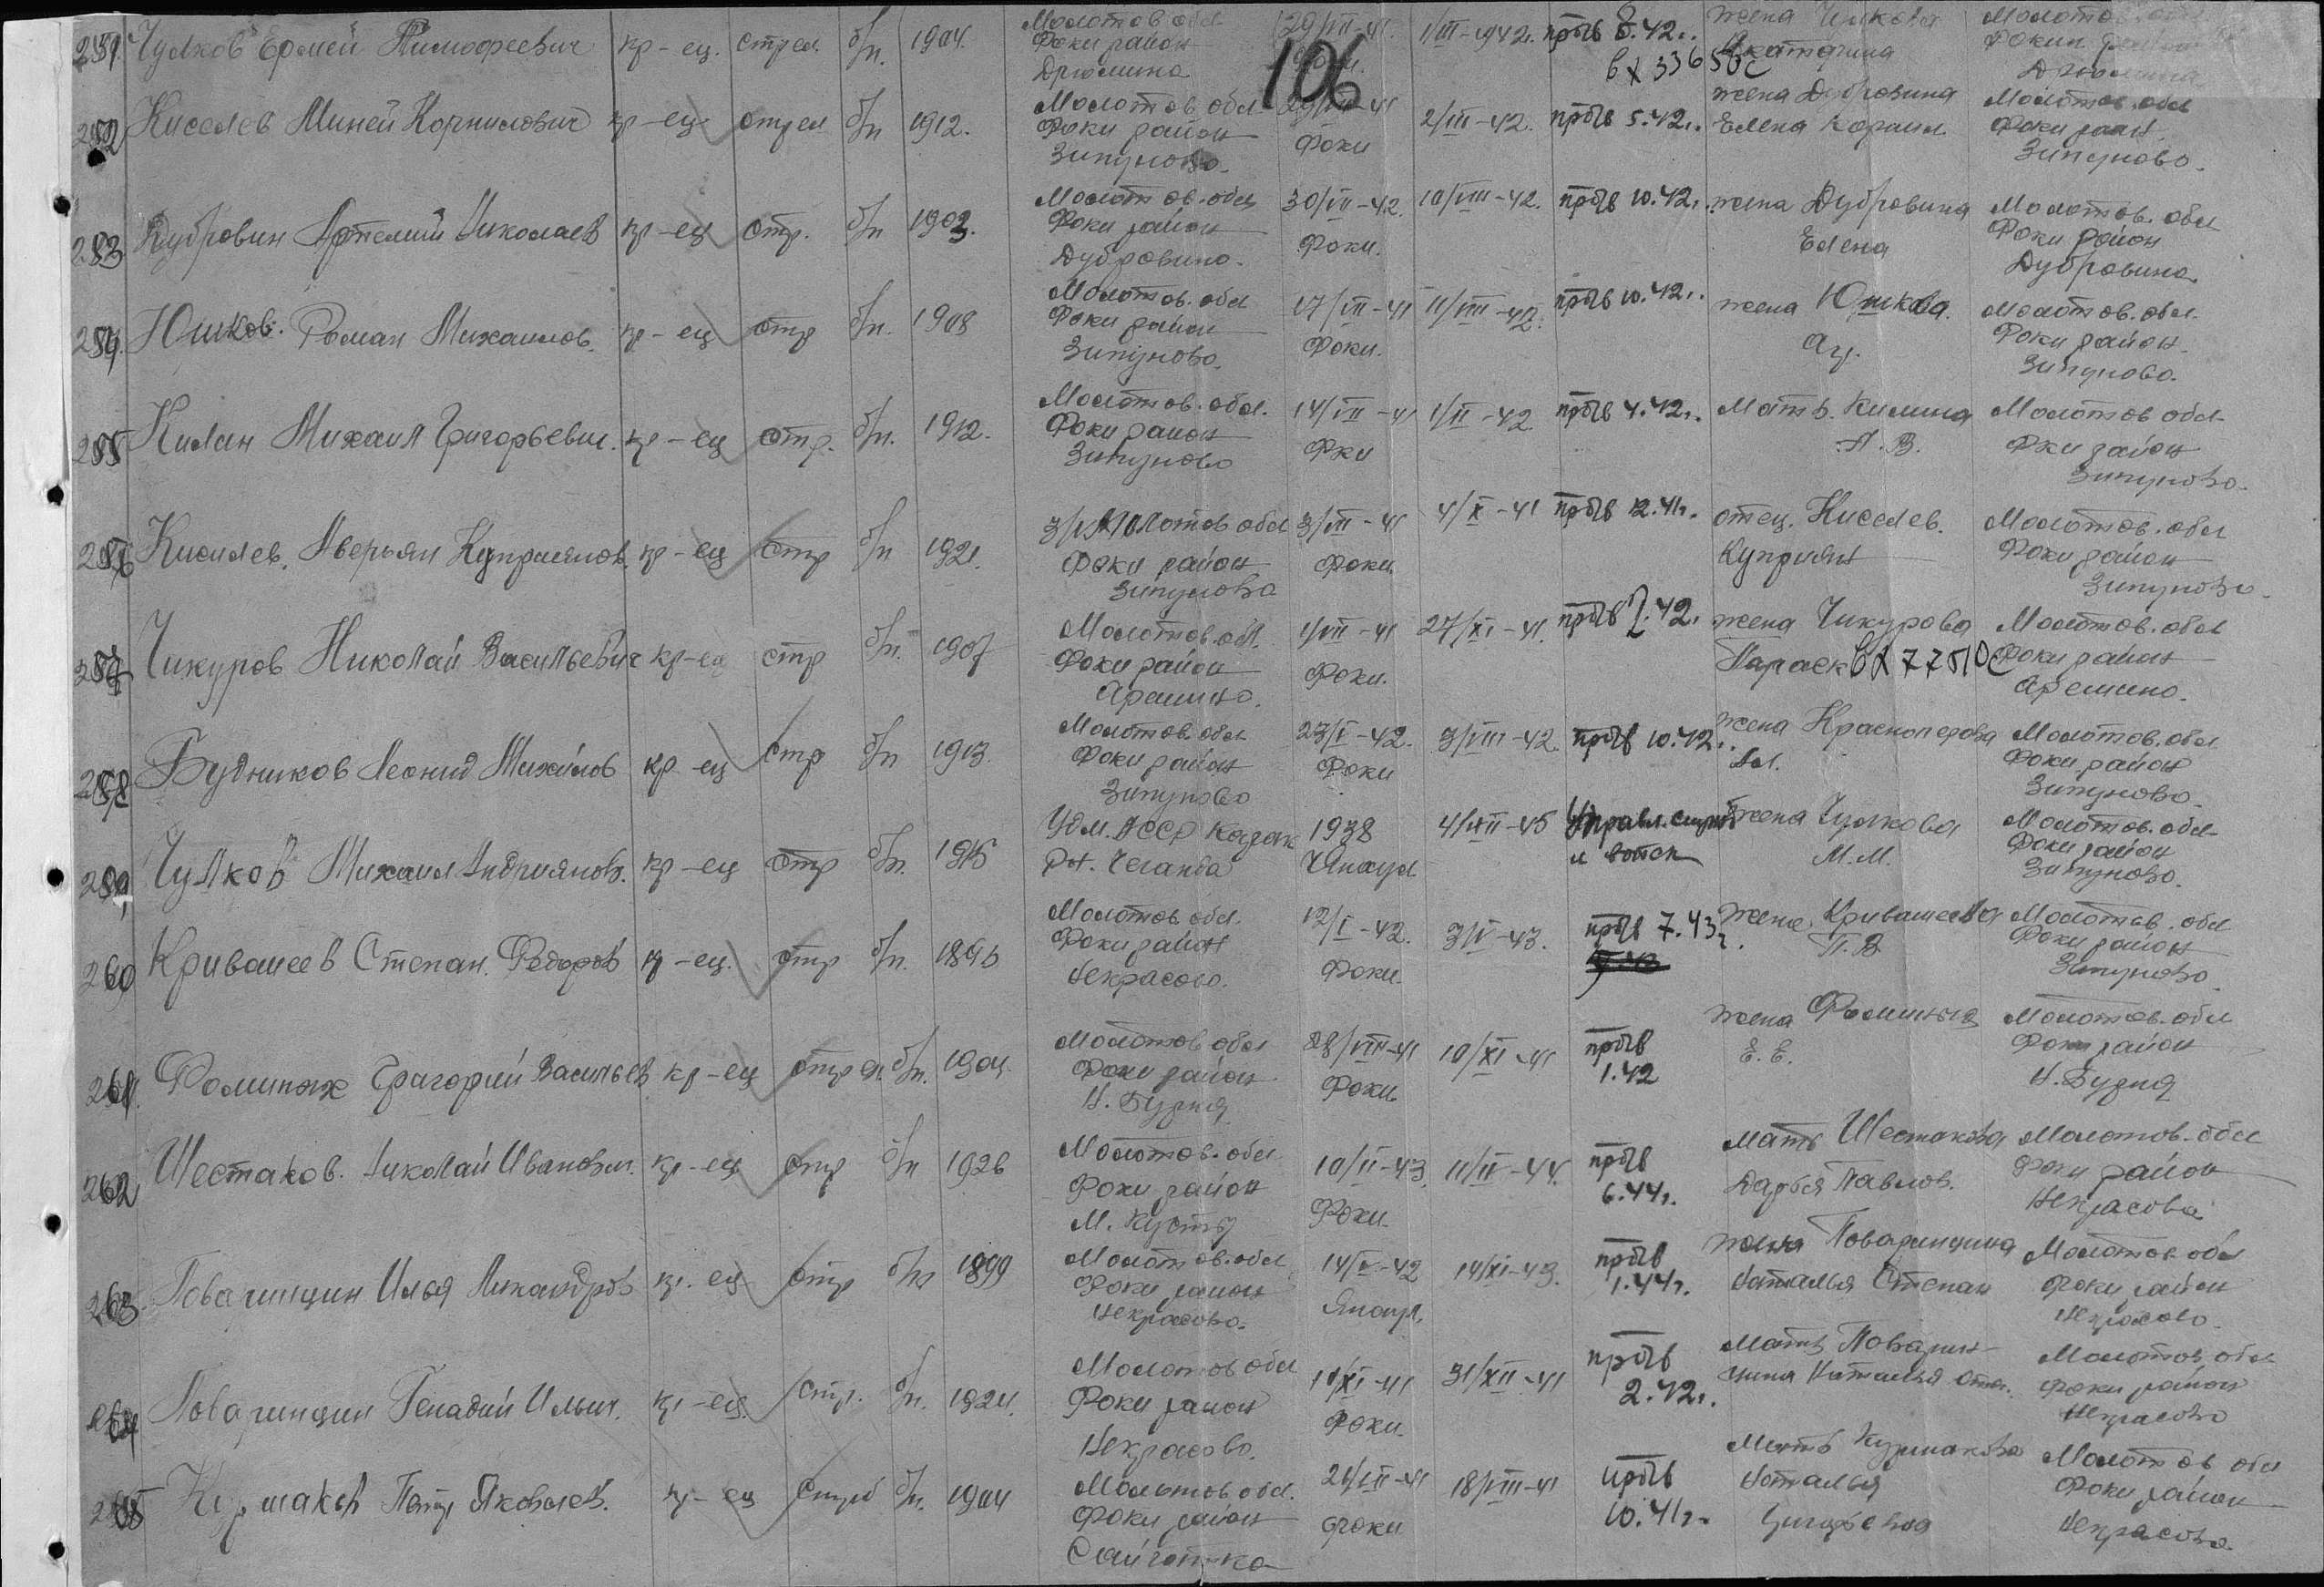 106
251. Чулков Ермей Тимофеевич кр-ец. стрел. б/п. 1904. Молотов обл Фоки район Дрюмина 29/VII-41. 1/III-1942г. пр. б/в 8.42г. вх 33650с жена Чулкова Екатерина Молотов Фокин Дрюмина
252 Киселев Миней Корнилович кр-ец стрел б/п 1912. Молотов обл Фоки район Зипуново. Фоки 2/III-42. пр. б/в 5.42г. жена Дубровина Елена Корнил Молотов. обл Фоки район Зипуново.
253 Дубровин Артемий Николаев кр-ец стр. б/п 1903. Молотов. обл Фоки район Дубровино. 30/VII-42. Фоки. 10/VIII-42. пр. б/в 10.42г. жена Дубровина Елена Молотов. обл Фоки район Дубровино
254. Юшков. Роман Михаилов. кр-ец стр б/п. 1908 Молотов. обл Фоки район Зипуново. 17/VII-41 Фоки. 11/VIII-42. пр. б/в 10.42г. жена Юшкова. Молотов. обл. Фоки район Зипуново.
255 Килин Михаил Григорьевич. кр-ец стр. б/п. 1912. Молотов. обл. Фоки район Зипуново 14/VII-41 Фки 1/II-42 пр. б/в 4.42г. Мать. Килина А. В. Молотов обл Фки район Зипуново.
256 Киселев. Аверьян Куприянов. кр-ец стр б/п 1921. Молотов обл Фоки район Зипуново 3/VII-41 Фоки. 4/X-41 пр. б/в 12.41г. отец. Киселев. Куприян Молотов. обл Фоки район Зипуново.
257 Чикуров Николай Васильевич кр-ец стр б/п. 1907 Молотов. обл. Фоки район Арешино. 1/VII-41 Фоки. 27/XI-41. пр. б/в 2.42. жена Чикурова Параск вх 77510с Молотов. обл Фоки район Арешино.
258 Будников Леонид Михайлов кр-ец стр б/п 1913. Молотов обл Фоки район Зипуново 23/I-42. Фоки 3/VIII-42. пр. б/в 10.42г. жена Красноперова Молотов. обл Фоки район Зипуново.
259. Чулков Михаил Андриянов. кр-ец стр б/п. 1915 Удм. АССР Чеганда 1938 4/XII-45 Управл. жена Чулкова М. М. Молотов. обл Фоки район Зипуново.
260 Кривашеев Степан. Федоров кр-ец. стр б/п. 1896 Молотов обл. Фоки район Некрасово. 12/I-42. Фоки. 3/V-43. пр. б/в 7.43г. жена. Кривашеева Молотов. обл Фоки район Зипуново
261. Фоминых Григорий Васильев кр-ец стрел. б/п. 1904. Молотов обл Фоки район Н. Бузня 28/VIII-41 Фоки 10/XI-41 пр. б/в 1.42 жена Фоминых Е. Е. Молотов. обл Фоки район
262 Шестаков. Николай Иванович. кр-ец стр б/п 1926 Молотов. обл Фоки район М. Кусты 10/II-43. Фоки. 11/II-44. пр. б/в 6.44г. Мать Шестакова Дарья Павлов. Молотов. обл Фоки район Некрасово
263. Поваринцин Илья Никандров кр. ец стр б/п 1899 Молотов. обл Фоки район Некрасово. 14/I-42 Янаул. 14/XI-43. пр. б/в 1.44г. жена Поваринцина Наталья Степан Молотов обл Фоки район Некрасово.
264 Поваринцин Генадий Ильич. кр-ец. стр. б/п. 1924. Молотов обл Фоки район Некрасово. 10/XI-41 Фоки. 31/XII-41 пр. б/в 2.42г. Мать Поварин-цина Наталья Степ. Молотов. обл Фоки район Некрасово
265 Курмаков Петр Яковлев. кр-ец стр б/п. 1904 Молотов обл. Фоки район 26/VII-41 Фоки 18/VIII-41 пр. б/в 10.41г. Мать Курмакова Наталья Молотов обл Фоки район Некрасово.